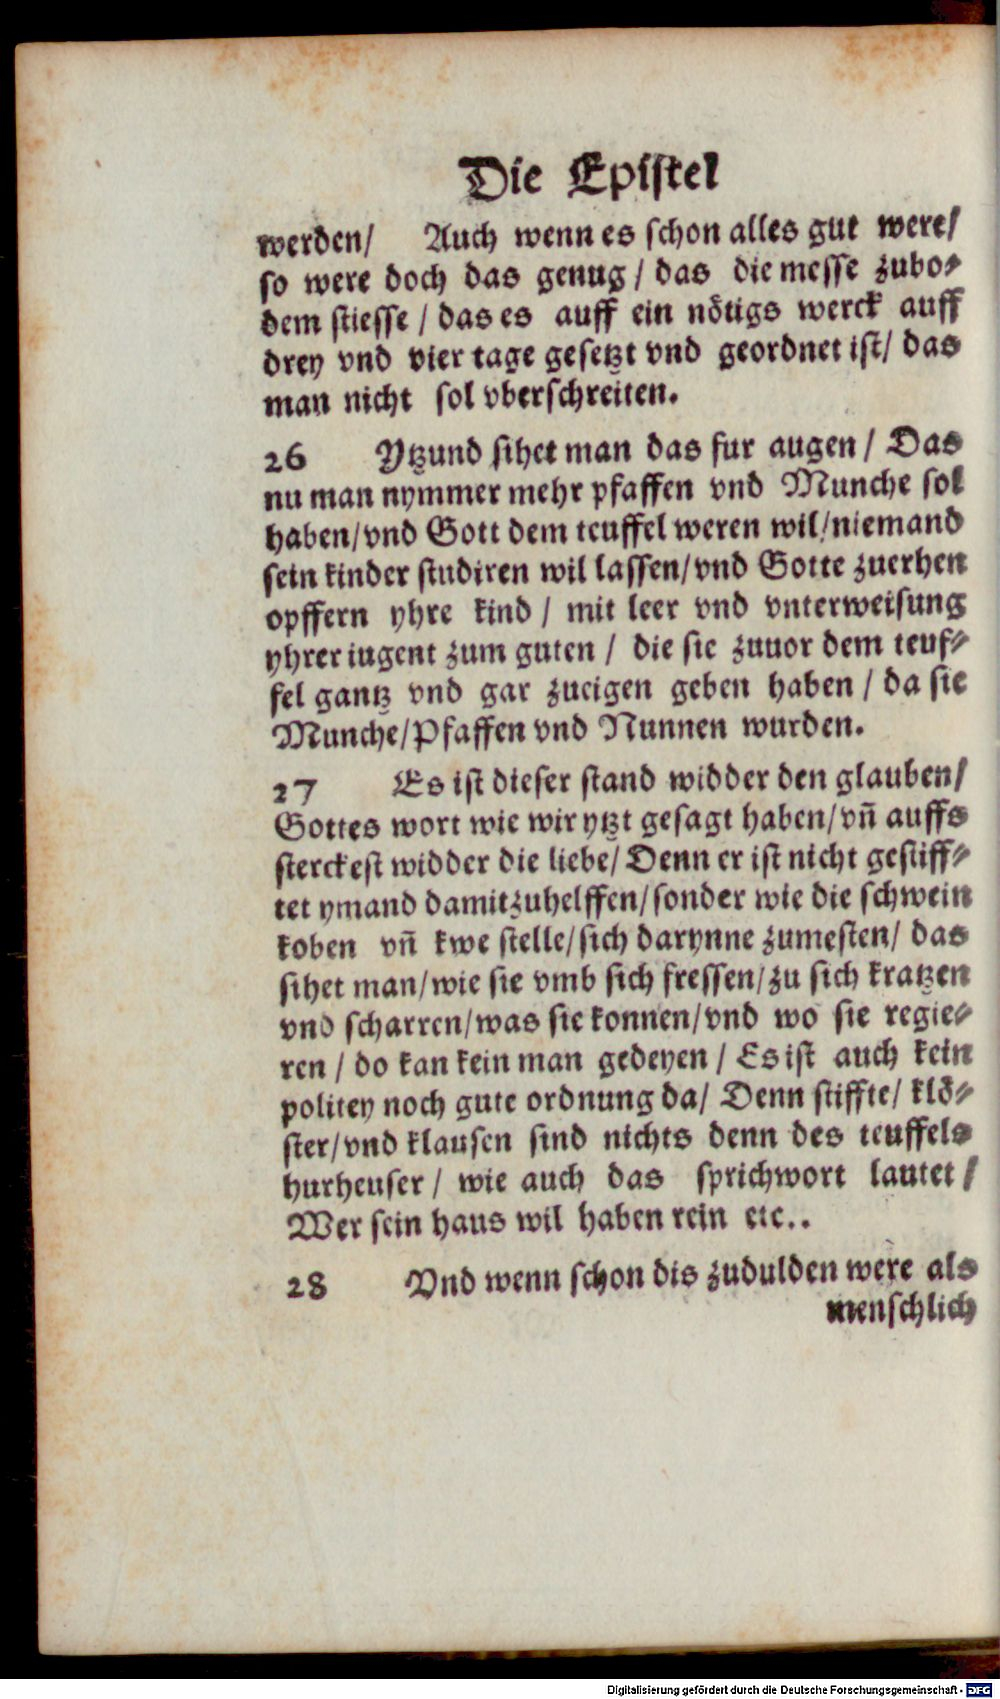 Die Epistel
werden/ Auch wenn es schon alles gut were/
so were doch das genug / das die messe zubo⸗
dem stiesse / das es auff ein nötigs werck auff
drey vnd vier tage gesetzt vnd geordnet ist/ das
man nicht sol vberschreiten.
26 Ytzund sihet man das fur augen / Das
nu man nymmer mehr pfaffen vnd Munche sol
haben/vnd Gott dem teuffel weren wil/niemand
sein kinder studiren wil lassen/vnd Gotte zuerhen
opffern yhre kind / mit leer vnd vnterweisung
yhrer iugent zum guten / die sie zuuor dem teuf⸗
fel gantz vnd gar zueigen geben haben / da sie
Munche/Pfaffen vnd Nunnen wurden.
27 Es ist dieser stand widder den glauben/
Gottes wort wie wir ytzt gesagt haben/vñ auffs
sterckest widder die liebe/ Denn er ist nicht gestiff⸗
tet ymand damitzuhelffen/sonder wie die schwein
koben vñ kwe stelle/sich darynne zumesten/ das
sihet man/wie sie vmb sich fressen/zu sich kratzen
vnd scharren/was sie konnen/vnd wo sie regie⸗
ren / do kan kein man gedeyen / Es ist auch kein
politey noch gute ordnung da/ Denn stiffte/ klö⸗
ster/vnd klausen sind nichts denn des teuffels
hurheuser / wie auch das sprichwort lautet /
Wer sein haus wil haben rein etc..
28 Vnd wenn schon dis zudulden were als
menschlich
Digitalisierung gefördert durch die Deutsche Forschungsgemeinschaft - DFG